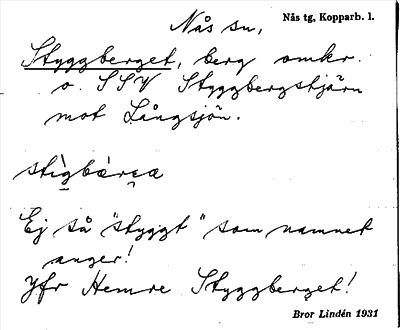 Nås sn,
Nås tg, Kopparb. l.
Styggberget, berg omkr.
o. SSV Styggbergstjärn
mot Långsjön.
Ej så "styggt" som namnet
anger!
Jfr Hemre Styggberget!
Bror Lindén 1931